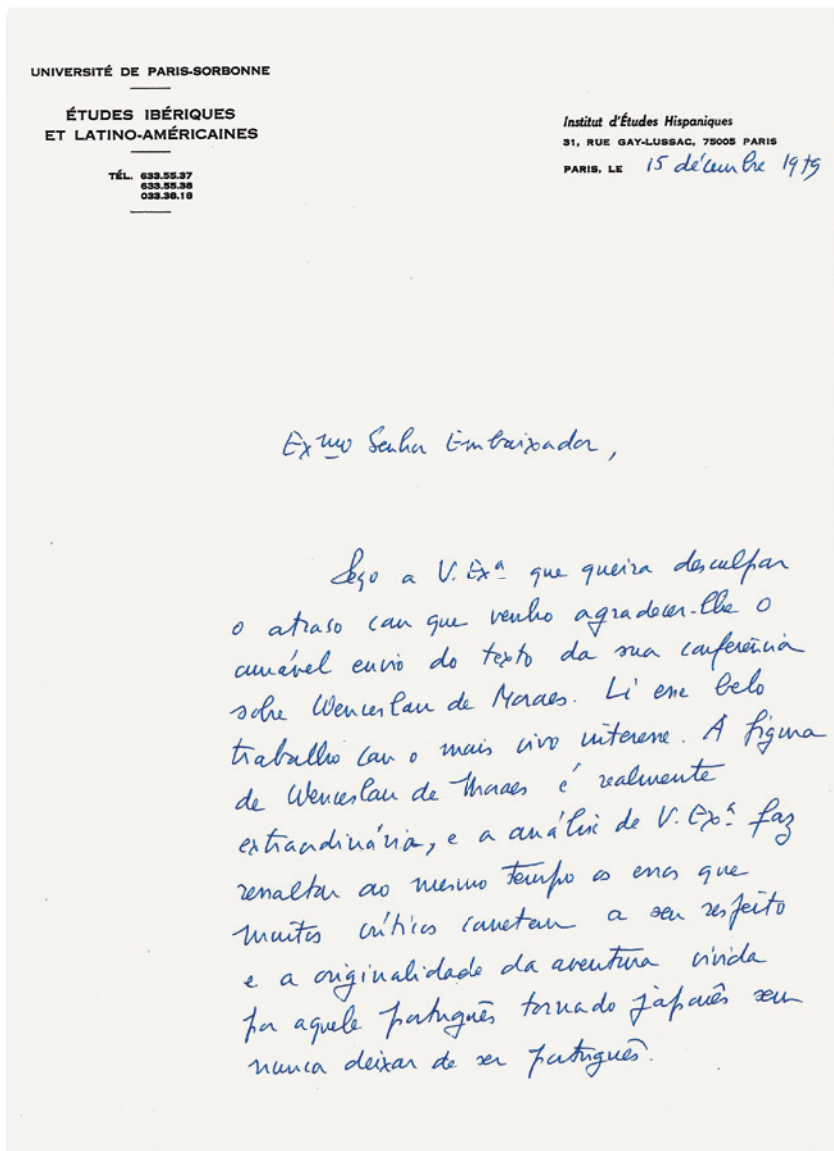 UNIVERSITÉ DE PARIS-SORBONNE
ÉTUDES IBÉRIQUES
ET LATINO-AMÉRICAINES
TÉL. 633.55.37
633.55.38
033.38.18
Institut d'Études Hispaniques
31, RUE GAY-LUSSAC, 75005 PARIS
PARIS, LE 15 décembre 1979
Exmo Senhor Embaixador,
Peço a V. Exª que queira desculpar
o atraso com que venho agradecer-lhe o
amável envio do texto da sua conferência
sobre Wenceslau de Moraes. Li esse belo
trabalho com o mais vivo interesse. A figura
de Wenceslau de Moraes é realmente
extraordinária, e a análise de V. Exª faz
ressaltar ao mesmo tempo os erros que
muitos críticos cometem a seu respeito
e a originalidade da aventura vivida
por aquele português tornado japonês sem
nunca deixar de ser português.